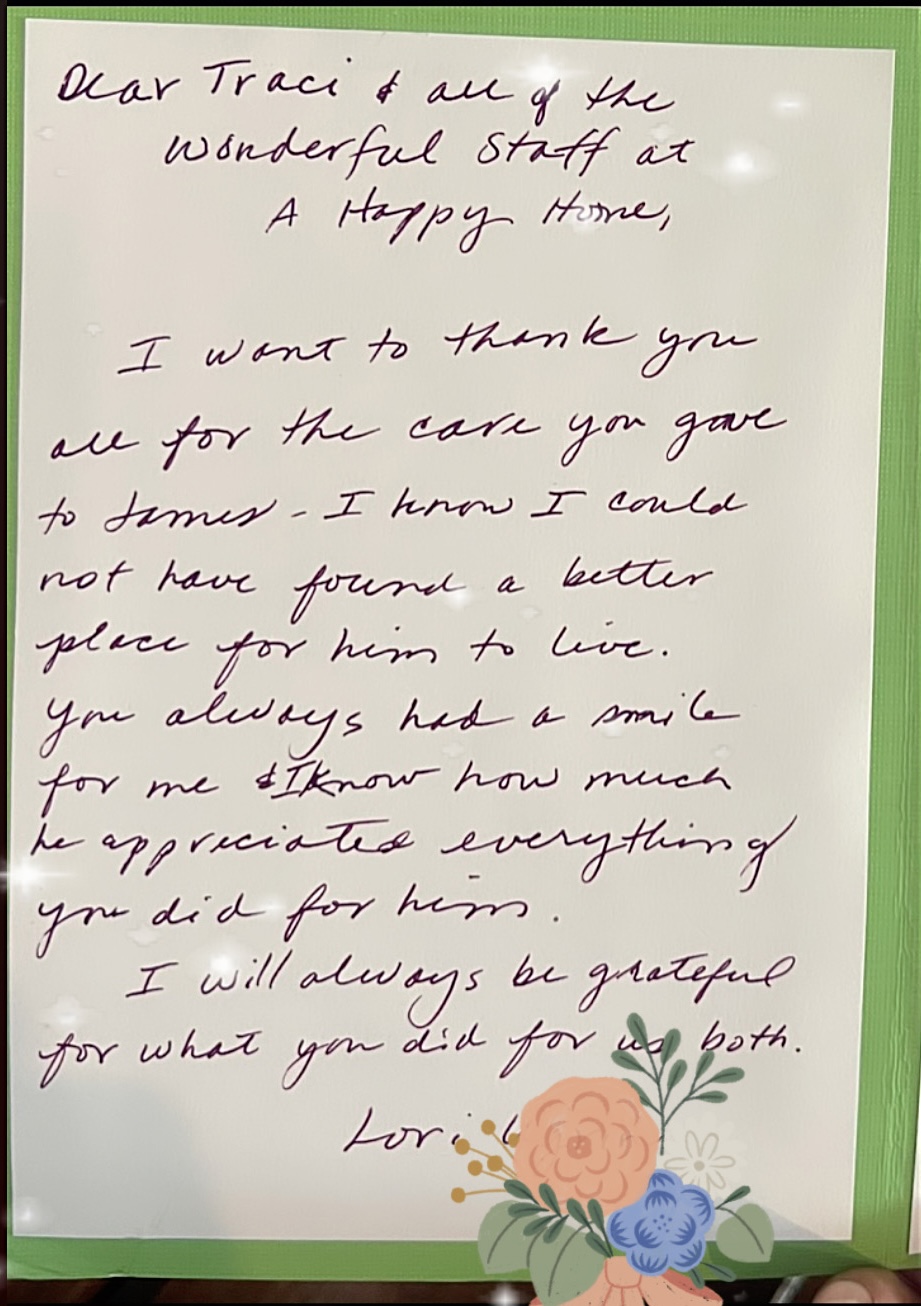 Dear Traci & all of the
Wonderful Staff at
A Happy Home,
I want to thank you
all for the care you gave
to James - I know I could
not have found a better
place for him to live.
You always had a smile
for me & I know how much
he appreciated everything
you did for him.
I will always be grateful
for what you did for us both.
Lori